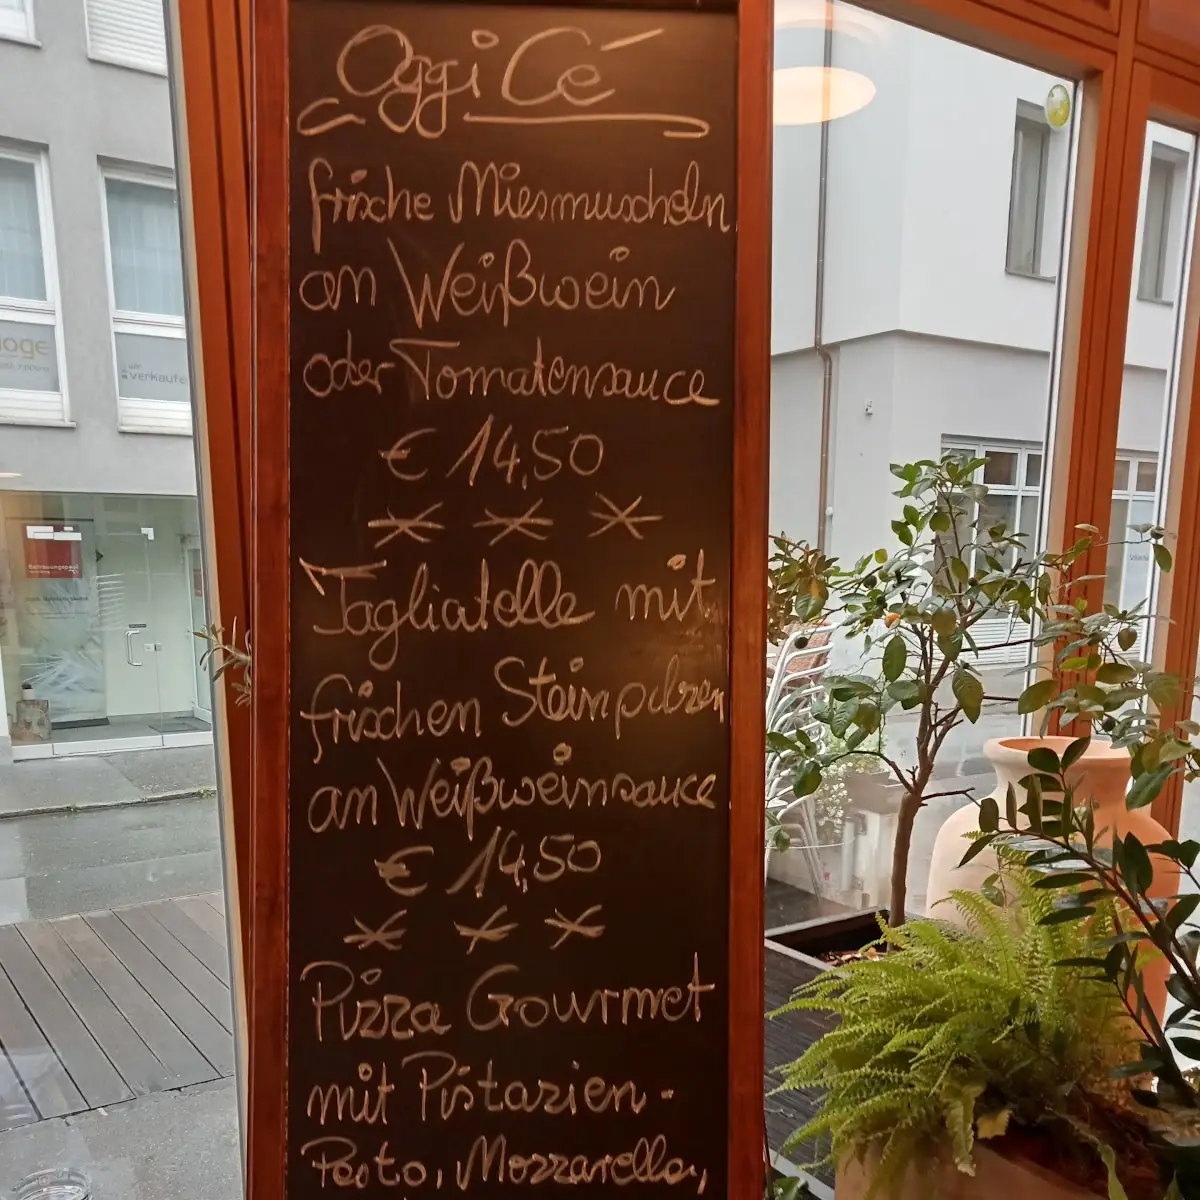 Oggi Cé
frische Miesmuscheln
an Weißwein
oder Tomatensauce
€ 14,50
Tagliatelle mit
frischen Steinpilzen
an Weißweinsauce
€ 14,50
Pizza Gourmet
mit Pistazien-
Pesto, Mozzarella,
verkaufe